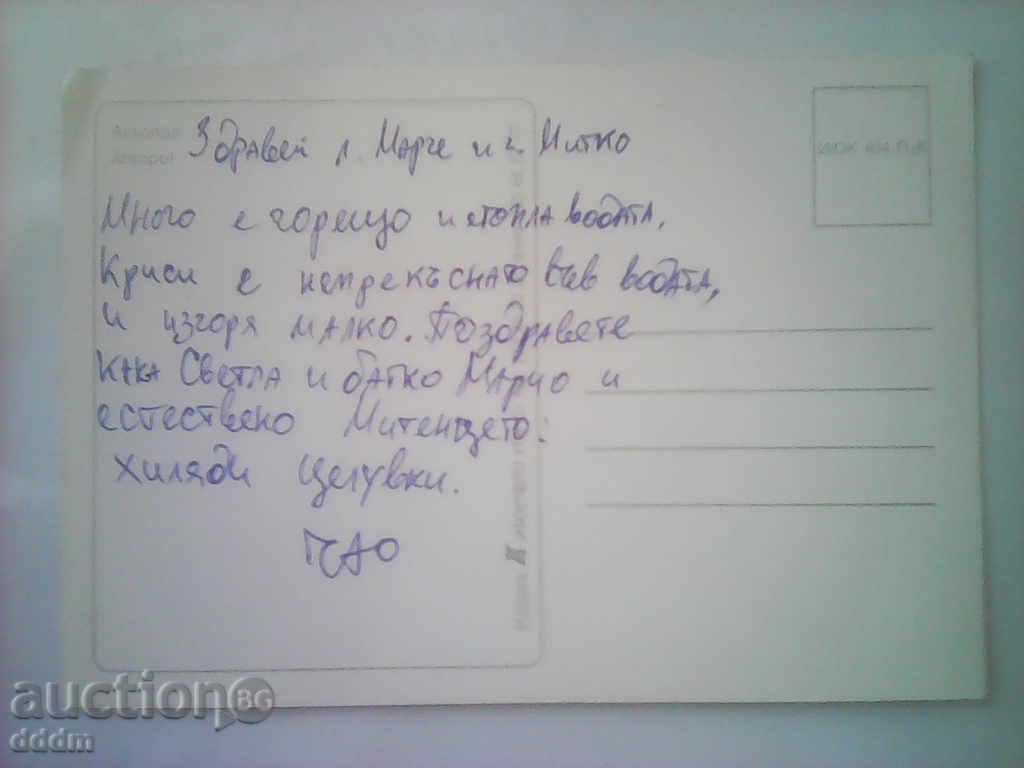 Ахтопол
Ahtopol
Здравей л. Марче и ч. Митко
Много е горещо и е топла водата.
Криси е непрекъснато във водата,
и изгоря малко. Поздравете
кака Светла и батко Марчо и
естествено Митенцето:
хиляди целувки.
ЧАО
auction BG
dddm